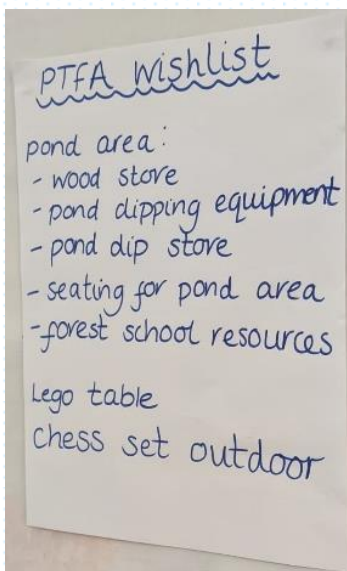 PTFA Wishlist
pond area:
- wood store
- pond dipping equipment
- pond dip store
- seating for pond area
- forest school resources
Lego table
Chess set outdoor